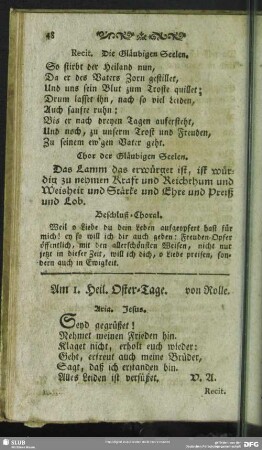 48
Recit. Die Gläubigen Seelen.
So stirbt der Heiland nun,
Da er des Vaters Zorn gestillet,
Und uns sein Blut zum Troste quillet;
Drum lasset ihn, nach so viel Leiden,
Auch sanfte ruhn:
Bis er nach dreyen Tagen auferstehet,
Und noch, zu unserm Trost und Freuden,
Zu seinem ew'gen Vater geht.
Chor der Gläubigen Seelen.
Das Lamm das erwürget ist, ist wür-
dig zu nehmen Kraft und Reichthum und
Weisheit und Stärke und Ehre und Preiß
und Lob.
Beschluß-Choral.
Weil o Liebe du dem Leben aufgeopfert hast für
mich! ey so will ich dir auch geben: Freuden-Opfer
öffentlich, mit den allerschönsten Weisen, nicht nur
jetzt in dieser Zeit, will ich dich, o Liebe preisen, son-
dern auch in Ewigkeit.
Am 1. Heil. Oster-Tage. von Rolle.
Aria. Jesus.
Seyd gegrüßet!
Nehmet meinen Frieden hin.
Klaget nicht, erholt euch wieder:
Geht, erfreut auch meine Brüder,
Sagt, daß ich erstanden bin.
Alles Leiden ist versüßet. V. A.
Recit.
SLUB